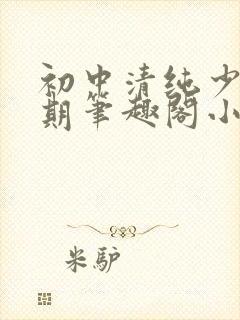 初中清纯少
期笔趣阁小
米驴